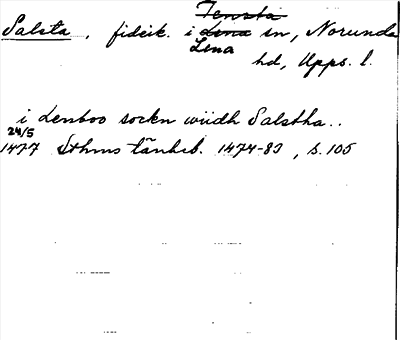 Tensta
Salsta, fideik. i Lena sn, Norunda
Lena
hd, Upps. l.
i Lenboo sockn widh Salstha..
24/5
1477 Sthms tänkeb. 1474-83, s. 105